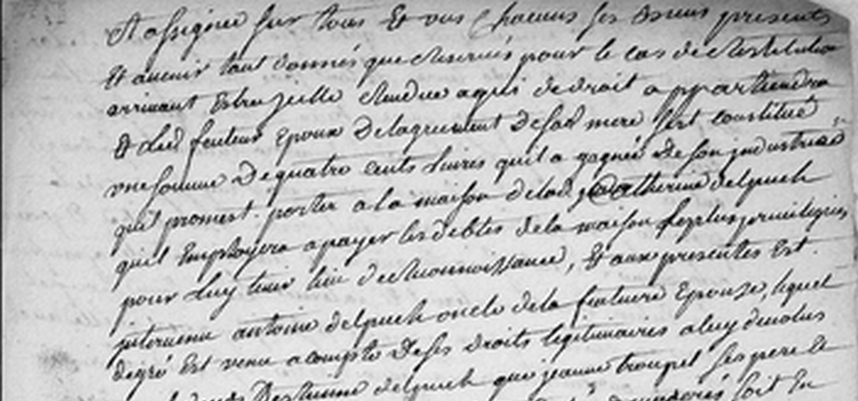 et assignée sur tous et uns chacuns ses biens presents
et avenir tant donnés que reservés pour le cas de restitution
arrivant estre jcelle rendue a qui de droit appartiendra
et led futeur epoux de lagrement desad mere sest constitué
une somme de quatre cents livres quil a gagnée de son jndustrie
quil promet porter a la maison delad Catherine delpuech
quil Employera a payer les debtes de la maison les plus privilegiés
pour luy tenir lieu de reconnoissance, Et aux presentes Est
jntervenu antoine delpuech oncle dela futeure Epouze, lequel
degré Est venu a compte de ses droits legitimaires a luy devolus
delpuech que jeanne troupel ses pere et
soit en